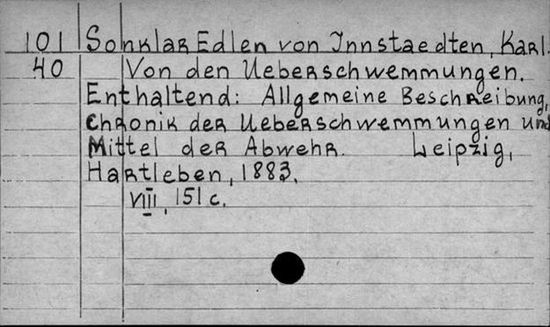 101 Sonklar Edlen von Innstaedten, Karl.
40 Von den Ueberschwemmungen.
Enthaltend: Allgemeine Beschreibung,
Chronik der Ueberschwemmungen und
Mittel der Abwehr. Leipzig,
Hartleben, 1883.
VIII, 151 c.